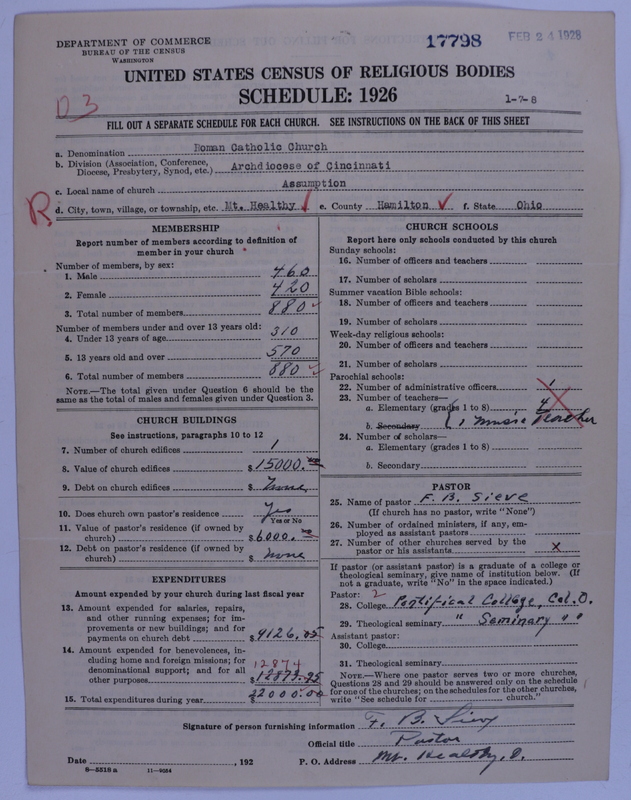 DEPARTMENT OF COMMERCE
BUREAU OF THE CENSUS
WASHINGTON
17798
FEB 24 1928
UNITED STATES CENSUS OF RELIGIOUS BODIES
SCHEDULE: 1926
D3
1-7-8
FILL OUT A SEPARATE SCHEDULE FOR EACH CHURCH. SEE INSTRUCTIONS ON THE BACK OF THIS SHEET
a. Denomination Roman Catholic Church
b. Division (Association, Conference, Diocese, Presbytery, Synod, etc.) Archdiocese of Cincinnati
c. Local name of church Assumption
R
d. City, town, village, or township, etc. Mt. Healthy ✓ e. County Hamilton ✓ f. State Ohio
MEMBERSHIP
Report number of members according to definition of
member in your church
Number of members, by sex:
1. Male 460
2. Female 420
3. Total number of members 880 ✓
Number of members under and over 13 years old:
4. Under 13 years of age 310
5. 13 years old and over 570
6. Total number of members 880 ✓
NOTE.—The total given under Question 6 should be the
same as the total of males and females given under Question 3.
CHURCH BUILDINGS
See instructions, paragraphs 10 to 12
7. Number of church edifices 1
8. Value of church edifices $15000.
9. Debt on church edifices $ None
10. Does church own pastor's residence Yes
Yes or No
11. Value of pastor's residence (if owned by
church) $6000.
12. Debt on pastor's residence (if owned by
church) $ None
EXPENDITURES
Amount expended by your church during last fiscal year
13. Amount expended for salaries, repairs,
and other running expenses; for im-
provements or new buildings; and for
payments on church debt $9126.05
14. Amount expended for benevolences, in-
cluding home and foreign missions; for
denominational support; and for all 12874
other purposes $12873.95
15. Total expenditures during year $22000.00
CHURCH SCHOOLS
Report here only schools conducted by this church
Sunday schools:
16. Number of officers and teachers
17. Number of scholars
Summer vacation Bible schools:
18. Number of officers and teachers
19. Number of scholars
Week-day religious schools:
20. Number of officers and teachers
21. Number of scholars
Parochial schools:
22. Number of administrative officers 1
23. Number of teachers—
a. Elementary (grades 1 to 8) 4
b. Secondary 1 music teacher
24. Number of scholars—
a. Elementary (grades 1 to 8)
b. Secondary
PASTOR
25. Name of pastor F. B. Sieve
(If church has no pastor, write "None")
26. Number of ordained ministers, if any, em-
ployed as assistant pastors
27. Number of other churches served by the
pastor or his assistants x
If pastor (or assistant pastor) is a graduate of a college or
theological seminary, give name of institution below. (If
not a graduate, write "No" in the space indicated.)
Pastor: 2
28. College Pontifical College, Col. O.
29. Theological seminary " Seminary " "
Assistant pastor:
30. College
31. Theological seminary
NOTE.—Where one pastor serves two or more churches,
Questions 28 and 29 should be answered only on the schedule
for one of the churches; on the schedules for the other churches,
write "See schedule for ........ church."
Signature of person furnishing information F. B. Sieve
Official title Pastor
Date ........, 192 P. O. Address Mt. Healthy, O.
8—5518 a 11—9084